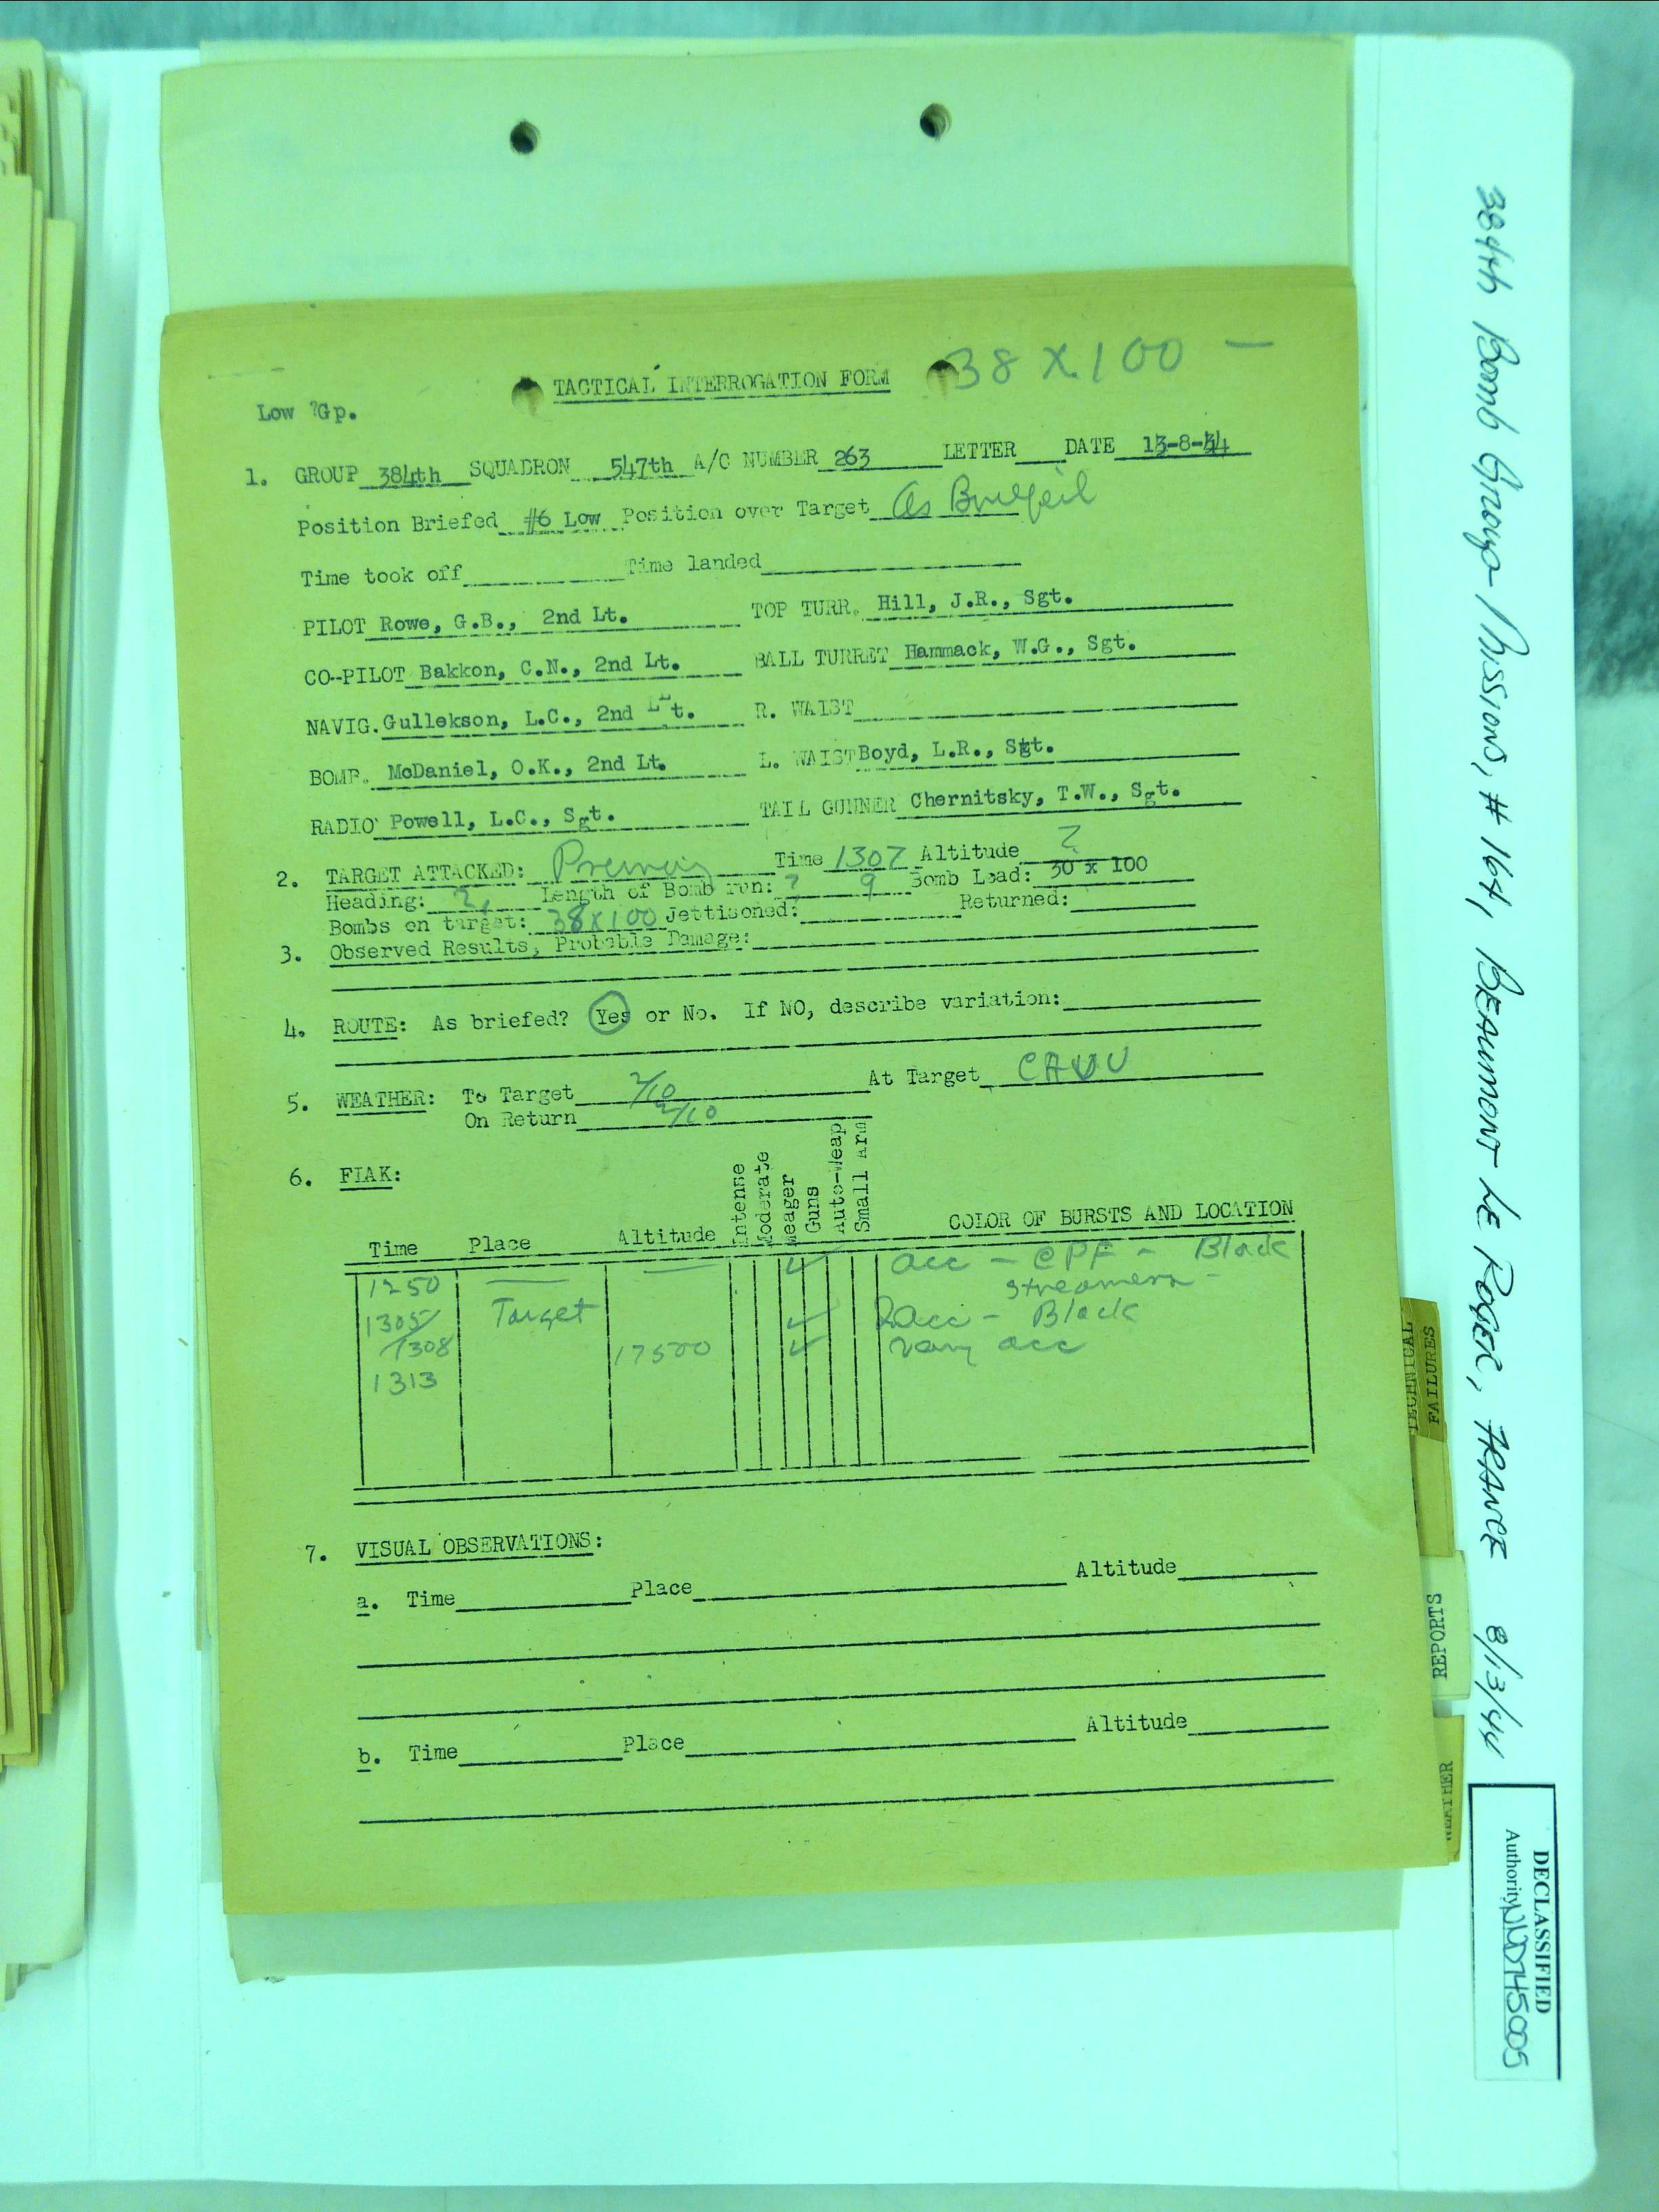 38 X 100 —
TACTICAL INTERROGATION FORM
Low ?Gp.
1. GROUP 384th SQUADRON 547th A/C NUMBER 263 LETTER DATE 13-8-44
Position Briefed #6 Low Position over Target As Briefed
Time took off Time landed
PILOT Rowe, G.B., 2nd Lt. TOP TURR. Hill, J.R., Sgt.
CO-PILOT Bakkon, C.N., 2nd Lt. BALL TURRET Hammack, W.G., Sgt.
NAVIG. Gullekson, L.C., 2nd Lt. R. WAIST
BOMB. McDaniel, O.K., 2nd Lt. L. WAIST Boyd, L.R., Sgt.
RADIO Powell, L.C., Sgt. TAIL GUNNER Chernitsky, T.W., Sgt.
2. TARGET ATTACKED: Primary Time 1307 Altitude ?
Heading: ? Length of Bomb run: ? 9 Bomb Load: 30 x 100
Bombs on target: 38x100 Jettisoned: Returned:
3. Observed Results, Probable Damage:
4. ROUTE: As briefed? Yes or No. If NO, describe variation:
5. WEATHER: To Target 2/10 At Target CAVU
On Return 2/10
6. FLAK:
Time Place Altitude Intense Moderate Meager Guns Auto-Weap Small Arm COLOR OF BURSTS AND LOCATION
1250 — — ✓ acc - CPF - Black
streamers -
1305/ Target ✓ acc - Black
1308 17500 ✓ very acc
1313
7. VISUAL OBSERVATIONS:
a. Time Place Altitude
b. Time Place Altitude
384th Bomb Group - Missions, # 164, BEAUMONT LE ROGER, FRANCE 8/13/44
TECHNICAL
FAILURES
REPORTS
WEATHER
DECLASSIFIED
Authority NND745005